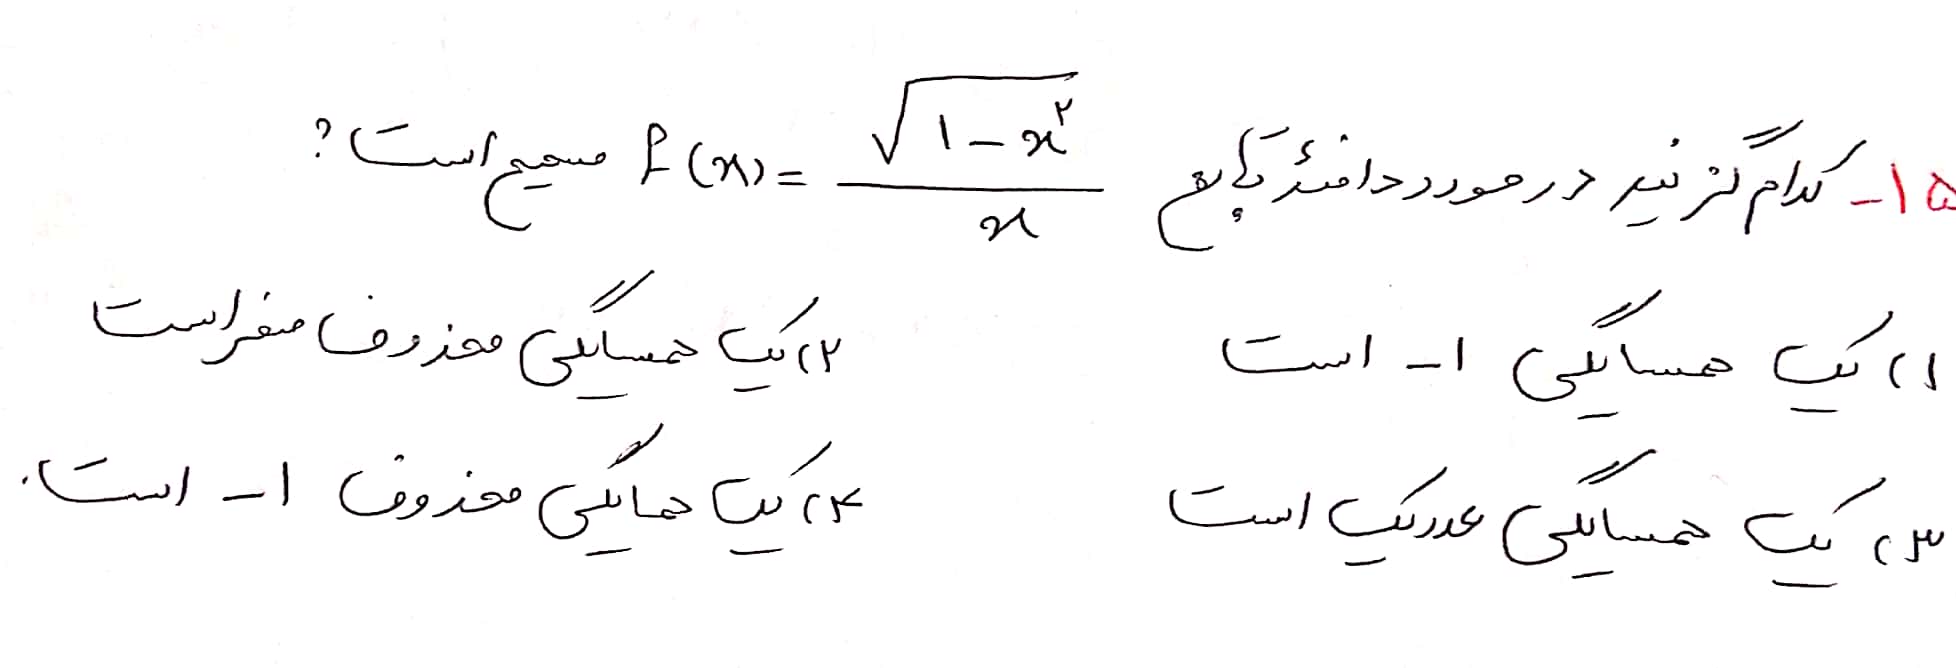 ۱۵- کدام گزینه در مورد دامنهٔ تابع f(x) = √(۱-x²) / x صحیح است؟
۱) یک همسایگی ۱- است ۲) یک همسایگی محذوف صفر است
۳) یک همسایگی عدد یک است ۴) یک همایگی محذوف ۱- است.